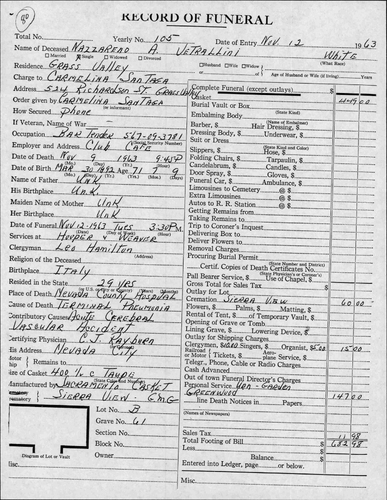 90
RECORD OF FUNERAL
Total No. Yearly No. 105 Date of Entry Nov 12 1963
Name of Deceased Nazzareno A. Vetrallini White
Married Single Widowed Divorced Husband Widow of (What Race)
Residence Grass Valley Age of Husband or Wife (if living) Years
Charge to Carmelina Santaga
Address 524 Richardson St. Grass Valley
Order given by Carmelina Santaga
(or informant)
How Secured Phone
If Veteran, Name of War
Occupation Bar Tender 567-09-3781
(Social Security Number)
Employer and Address Club Cafe
Date of Death Nov 9 1963 9:45P
Date of Birth Mar 30 1892 Age 71 7 9
Name of Father Unk
His Birthplace Unk
Maiden Name of Mother Unk
Her Birthplace Unk
Date of Funeral Nov-12-1963 Tues 3:30PM
Services at Hooper & Weaver
Clergyman Leo Hamilton
(Address)
Religion of the Deceased
Birthplace Italy
Resided in the State 29 yrs
Place of Death Nevada County Hospital
Cause of Death Terminal Pneumonia
Contributory Causes Acute Cerebral
Vascular Accident
Certifying Physician C.J. Rayburn
His Address Nevada City
Motor Remains to
Size of Casket 400 % C Taupe
Manufactured by Sacramento Casket
Sierra View - Gmg
Lot No. B
Grave No. 61
Section No.
Block No.
Owner
Diagram of Lot or Vault
Complete Funeral (except outlays) $
Casket 449.00
Burial Vault or Box
(State Kind)
Embalming Body
(Name of Embalmer)
Barber, $ Hair Dressing, $
Dressing Body, $ Underwear, $
Suit or Dress
(State Kind and Color)
Slippers, $ Hose, $
Folding Chairs, $ Tarpaulin, $
Candelabrum, $ Candles, $
Door Spray, $ Gloves, $
Funeral Car, $ Ambulance, $
Limousines to Cemetery @ $
Extra Limousines @ $
Autos to R. R. Station @ $
Getting Remains from
Taking Remains to
Trip to Coroner's Inquest
Delivering Box to
Deliver Flowers to
Removal Charges
Procuring Burial Permit
(State Number and District)
Certif. Copies of Death Certificates No.
Pall Bearer Service, $ Use of Chapel, $
(State Name or Number)
Gross Total for Sales Tax $
Outlay for Lot
Cremation Sierra View 60.00
Flowers, $ Palms, $ Matting, $
Rental of Tent, $ of Temporary Vault, $
Opening of Grave or Tomb
Lining Grave, $ Lowering Device, $
Outlay for Shipping Charges
Clergymen, $10.00 Singers, $ Organist, $5.00 15.00
Railroad or Motor Tickets, $ Aeroplane Service, $
Telegrams, $ Cable, $ Telephone, $
Cash Advanced
Out of town Funeral Director's Charges
Personal Service Urn - Garden
Greenwood 147.00
line Death Notices in Papers
(Names of Newspapers)
Sales Tax 11 98
Total Footing of Bill $ 682.98
Less
Balance $
Entered into Ledger, page or below.
Misc.